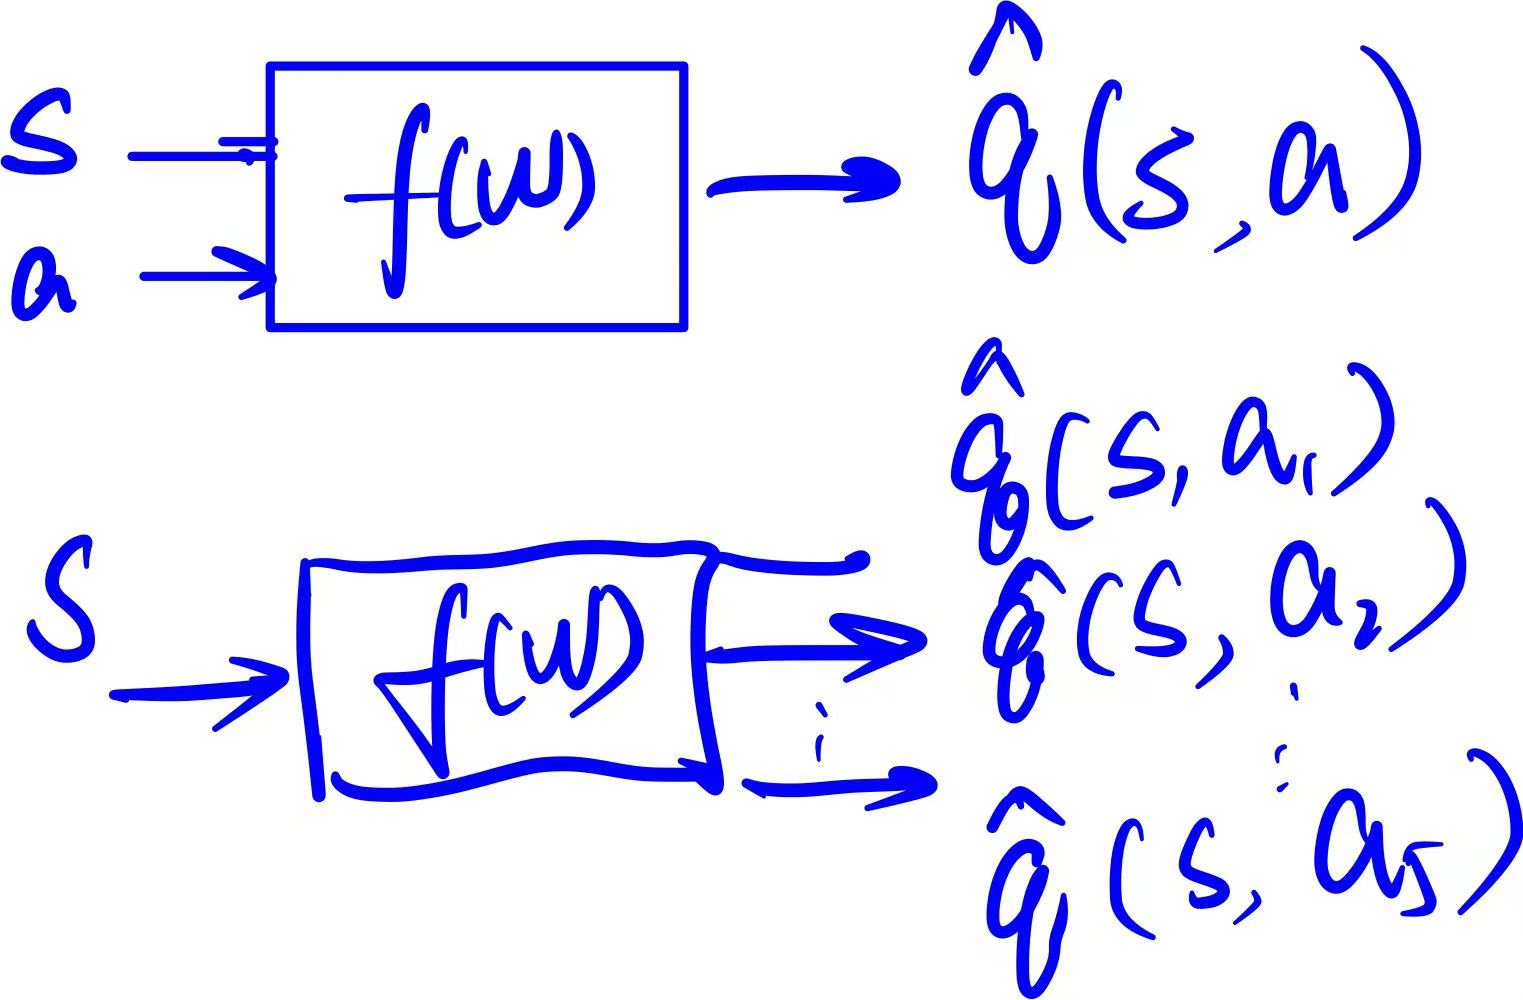 s
a
f(w)
q̂(s,a)
s
f(w)
q̂(s,a₁)
q̂(s,a₂)
⋮
⋮
q̂(s,a₅)